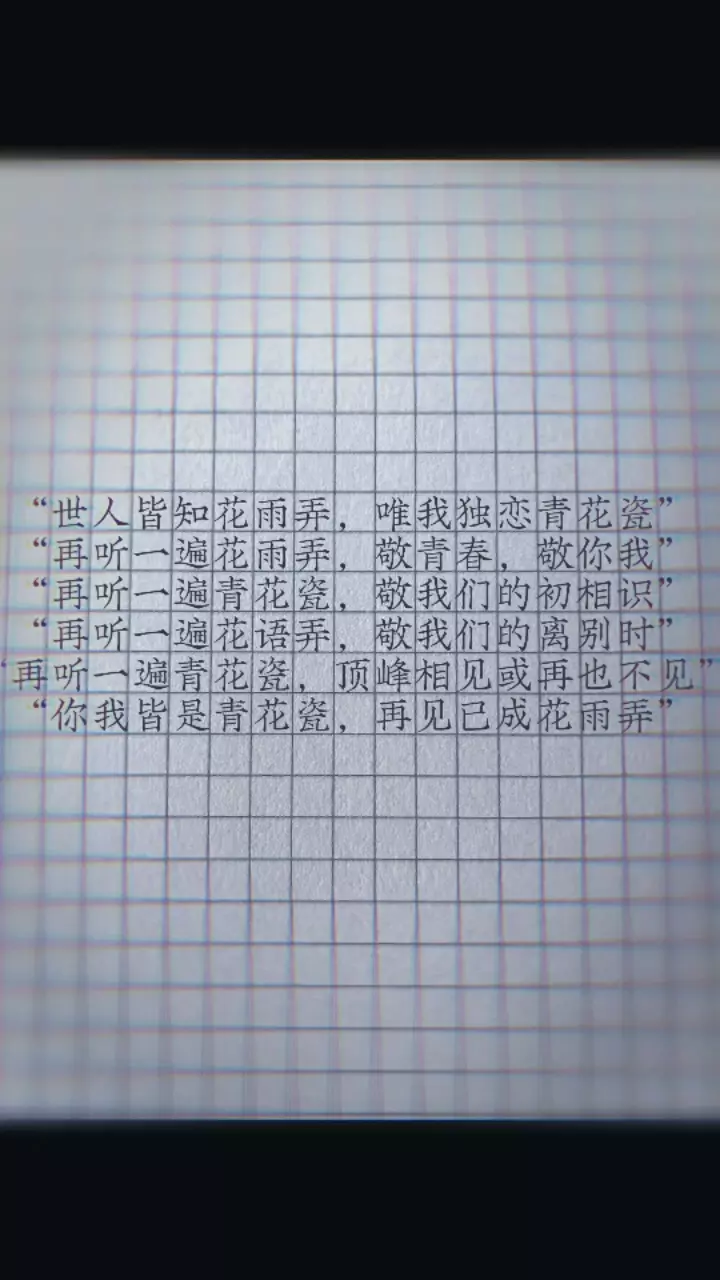 “世人皆知花雨弄，唯我独恋青花瓷”
“再听一遍花雨弄，敬青春，敬你我”
“再听一遍青花瓷，敬我们的初相识”
“再听一遍花语弄，敬我们的离别时”
“再听一遍青花瓷，顶峰相见或再也不见”
“你我皆是青花瓷，再见已成花雨弄”